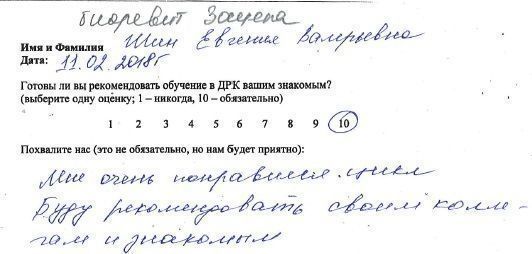 биоревит Зацепа
Имя и Фамилия Шин Евгения Валерьевна
Дата: 11.02.2018г
Готовы ли вы рекомендовать обучение в ДРК вашим знакомым?
(выберите одну оценку; 1 – никогда, 10 – обязательно)
1 2 3 4 5 6 7 8 9 10
Похвалите нас (это не обязательно, но нам будет приятно):
Мне очень понравился цикл
Буду рекомендовать своим колле-
гам и знакомым